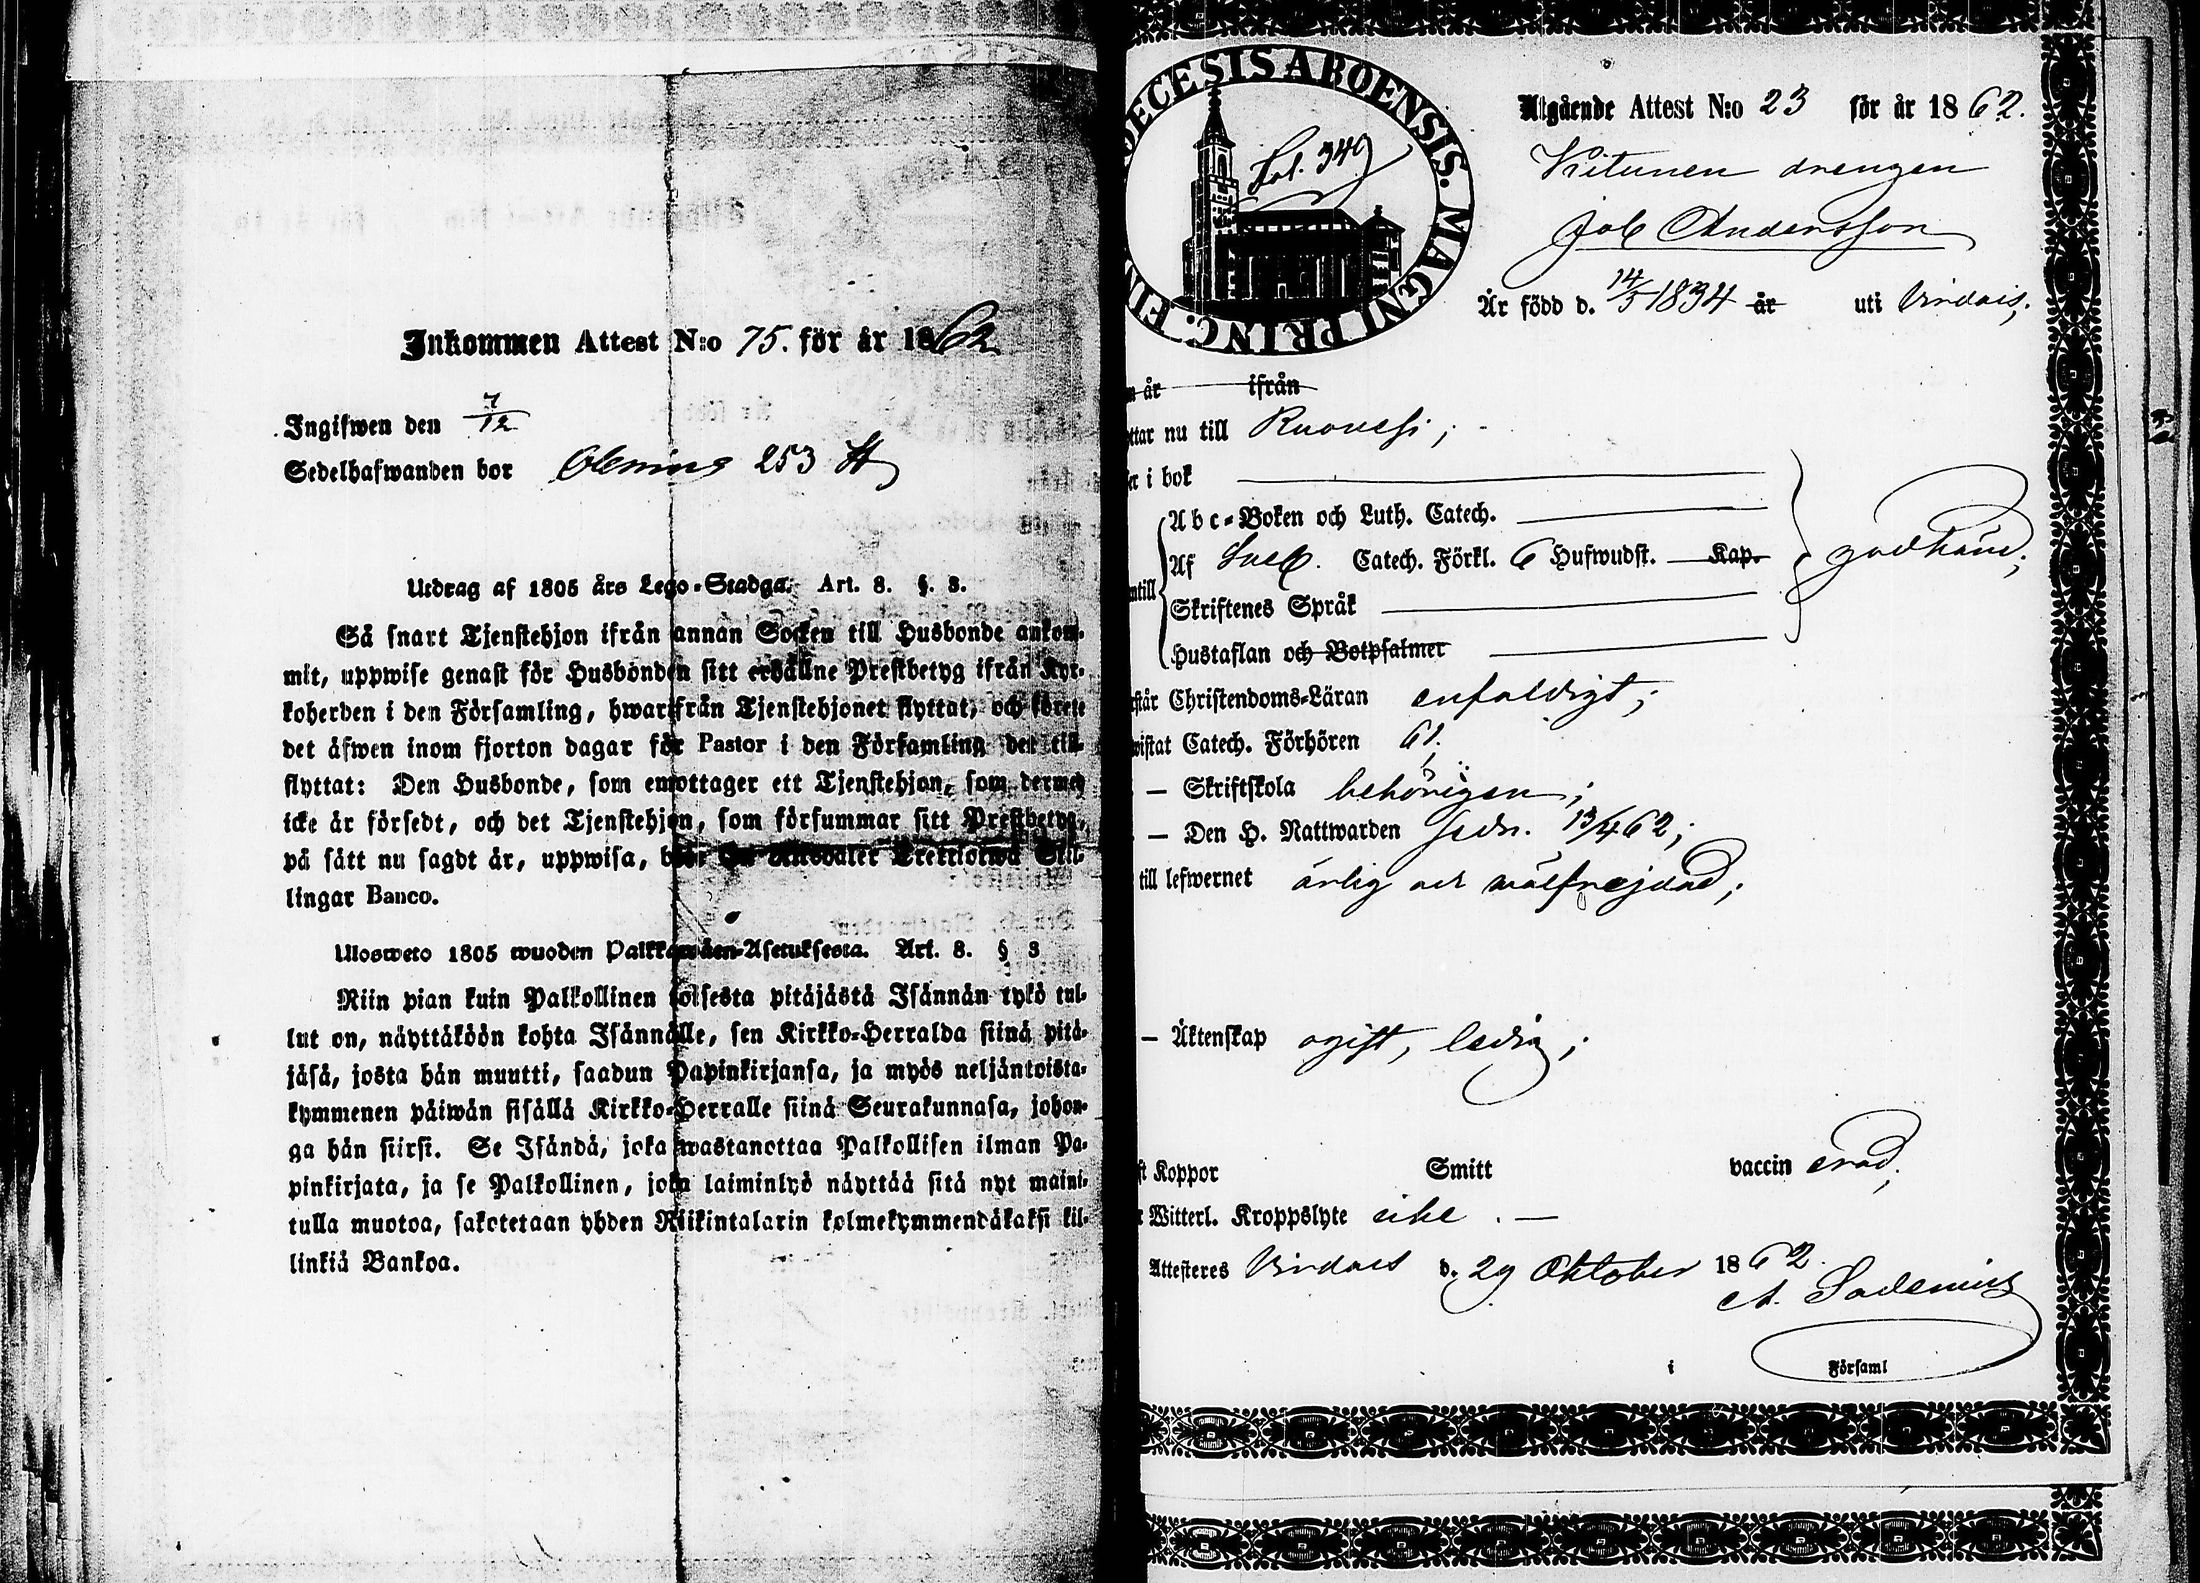 Inkommen Attest N:o 75. för år 1862
Ingifwen den 7/12
Sedelhafwanden bor 253
Utdrag af 1805 års Lego-Stadga. Art. 8. §. 3.
Så snart Tjenstehjon ifrån annan Socken till Husbonde ankom-
mit, uppwise genast för Husbonden sitt erhållne Prestbetyg ifrån Kyr-
koherden i den Församling, hwarifrån Tjenstehjonet flyttat, och förete
det äfwen inom fjorton dagar för Pastor i den Församling det till-
flyttat: Den Husbonde, som emottager ett Tjenstehjon, som dermed
icke är försedt, och det Tjenstehjon, som försummar sitt Prestbetyg,
på sätt nu sagdt är, uppwisa, Skil-
lingar Banco.
Ulosweto 1805 wuoden Palkkawäen-Asetuksesta. Art. 8. § 3
Niin pian kuin Palkollinen toisesta pitäjästä Isännän tykö tul-
lut on, näyttäköön kohta Isännälle, sen Kirkko-Herralda siinä pitä-
jäsä, josta hän muutti, saadun Papinkirjansa, ja myös neljäntoista-
kymmenen päiwän sisällä Kirkko-Herralle siinä Seurakunnasa, johon-
ga hän siirsi. Se Isändä, joka wastanottaa Palkollisen ilman Pa-
pinkirjata, ja se Palkollinen, joka laiminlyö näyttää sitä nyt maini-
tulla muotoa, sakotetaan yhden Riikintalarin kolmekymmendäkaksi kil-
linkiä Bankoa.
DECESIS ABOENSIS. MAGNI PRINC. FIN
Fol. 349
Utgående Attest N:o 23 för år 1862.
Kitunen drengen
Job Andersson
Är född d. 14/5 1834 år uti Virdois,
år ifrån
ttar nu till Ruovesi;
er i bok
Abc-Boken och Luth. Catech.
Af Sveb. Catech. Förkl. 6 Hufwudst. Kap.
godkänd;
ntill
Skriftenes Språk
Hustaflan och Botpsalmer
står Christendoms-Läran enfaldigt;
wistat Catech. Förhören 61;
— Skriftskola behörigen;
— Den H. Nattwarden sedn. 13/4 62;
till lefwernet ärlig och välfrejdad;
— Äktenskap ogift, ledig;
ft Koppor Smitt vaccinerad,
r Witterl. Kroppslyte icke. —
Attesteres Virdois d. 29 Oktober 1862.
A. Sadenius
i Församl